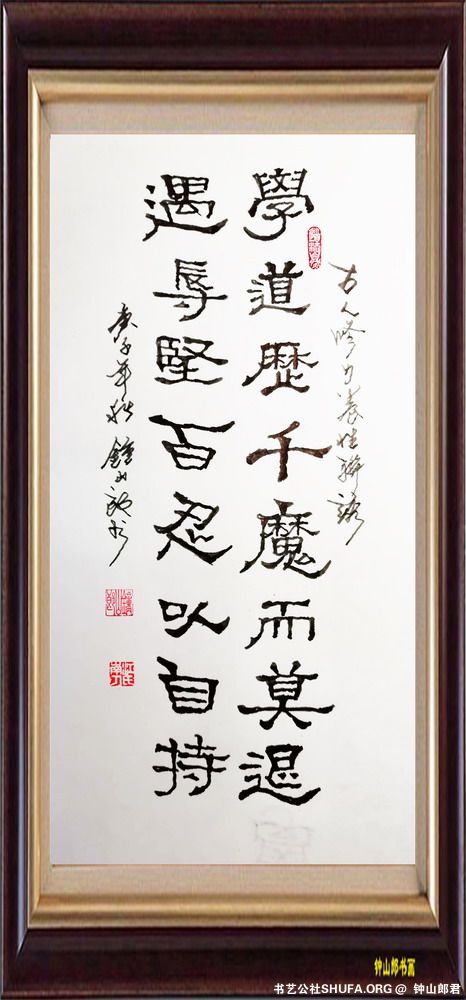 古人修身养性联语
學道歷千魔而莫退
遇辱堅百忍以自持
庚子年秋 鍾山郎书
钟山郎书画
书艺公社SHUFA.ORG @ 钟山郎君